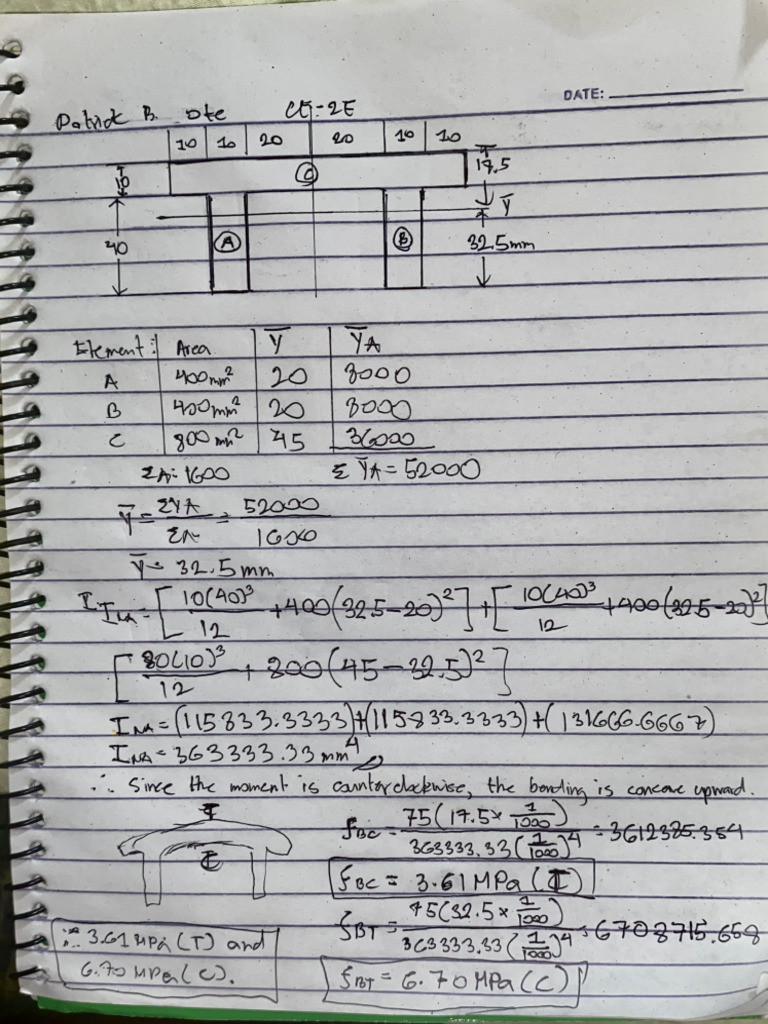 DATE:
Patrick B. Ote CE-2E
10 10 20 20 10 10
10 C 17.5
Y̅
40 A B 32.5mm
Element: Area Y̅ Y̅A
A 400mm² 20 8000
B 400mm² 20 8000
C 800mm² 45 36000
ΣA: 1600 Σ Y̅A = 52000
Y̅ = ΣYA/ΣA = 52000/1600
Y̅ = 32.5mm
I_NA = [10(40)³/12 + 400(32.5-20)²] + [10(40)³/12 + 400(32.5-20)²]
[80(10)³/12 + 800(45-32.5)²]
I_NA = (115833.3333)+(115833.3333)+(131666.6667)
I_NA = 363333.33 mm⁴
∴ Since the moment is counterclockwise, the bending is concave upward.
f_BC = 75(17.5×1/1000)/363333.33(1/1000)⁴ = 3612385.354
f_BC = 3.61 MPa (T)
f_BT = 75(32.5×1/1000)/363333.33(1/1000)⁴ = 6708715.658
f_BT = 6.70 MPa (C)
∴ 3.61 MPa (T) and
6.70 MPa (C).